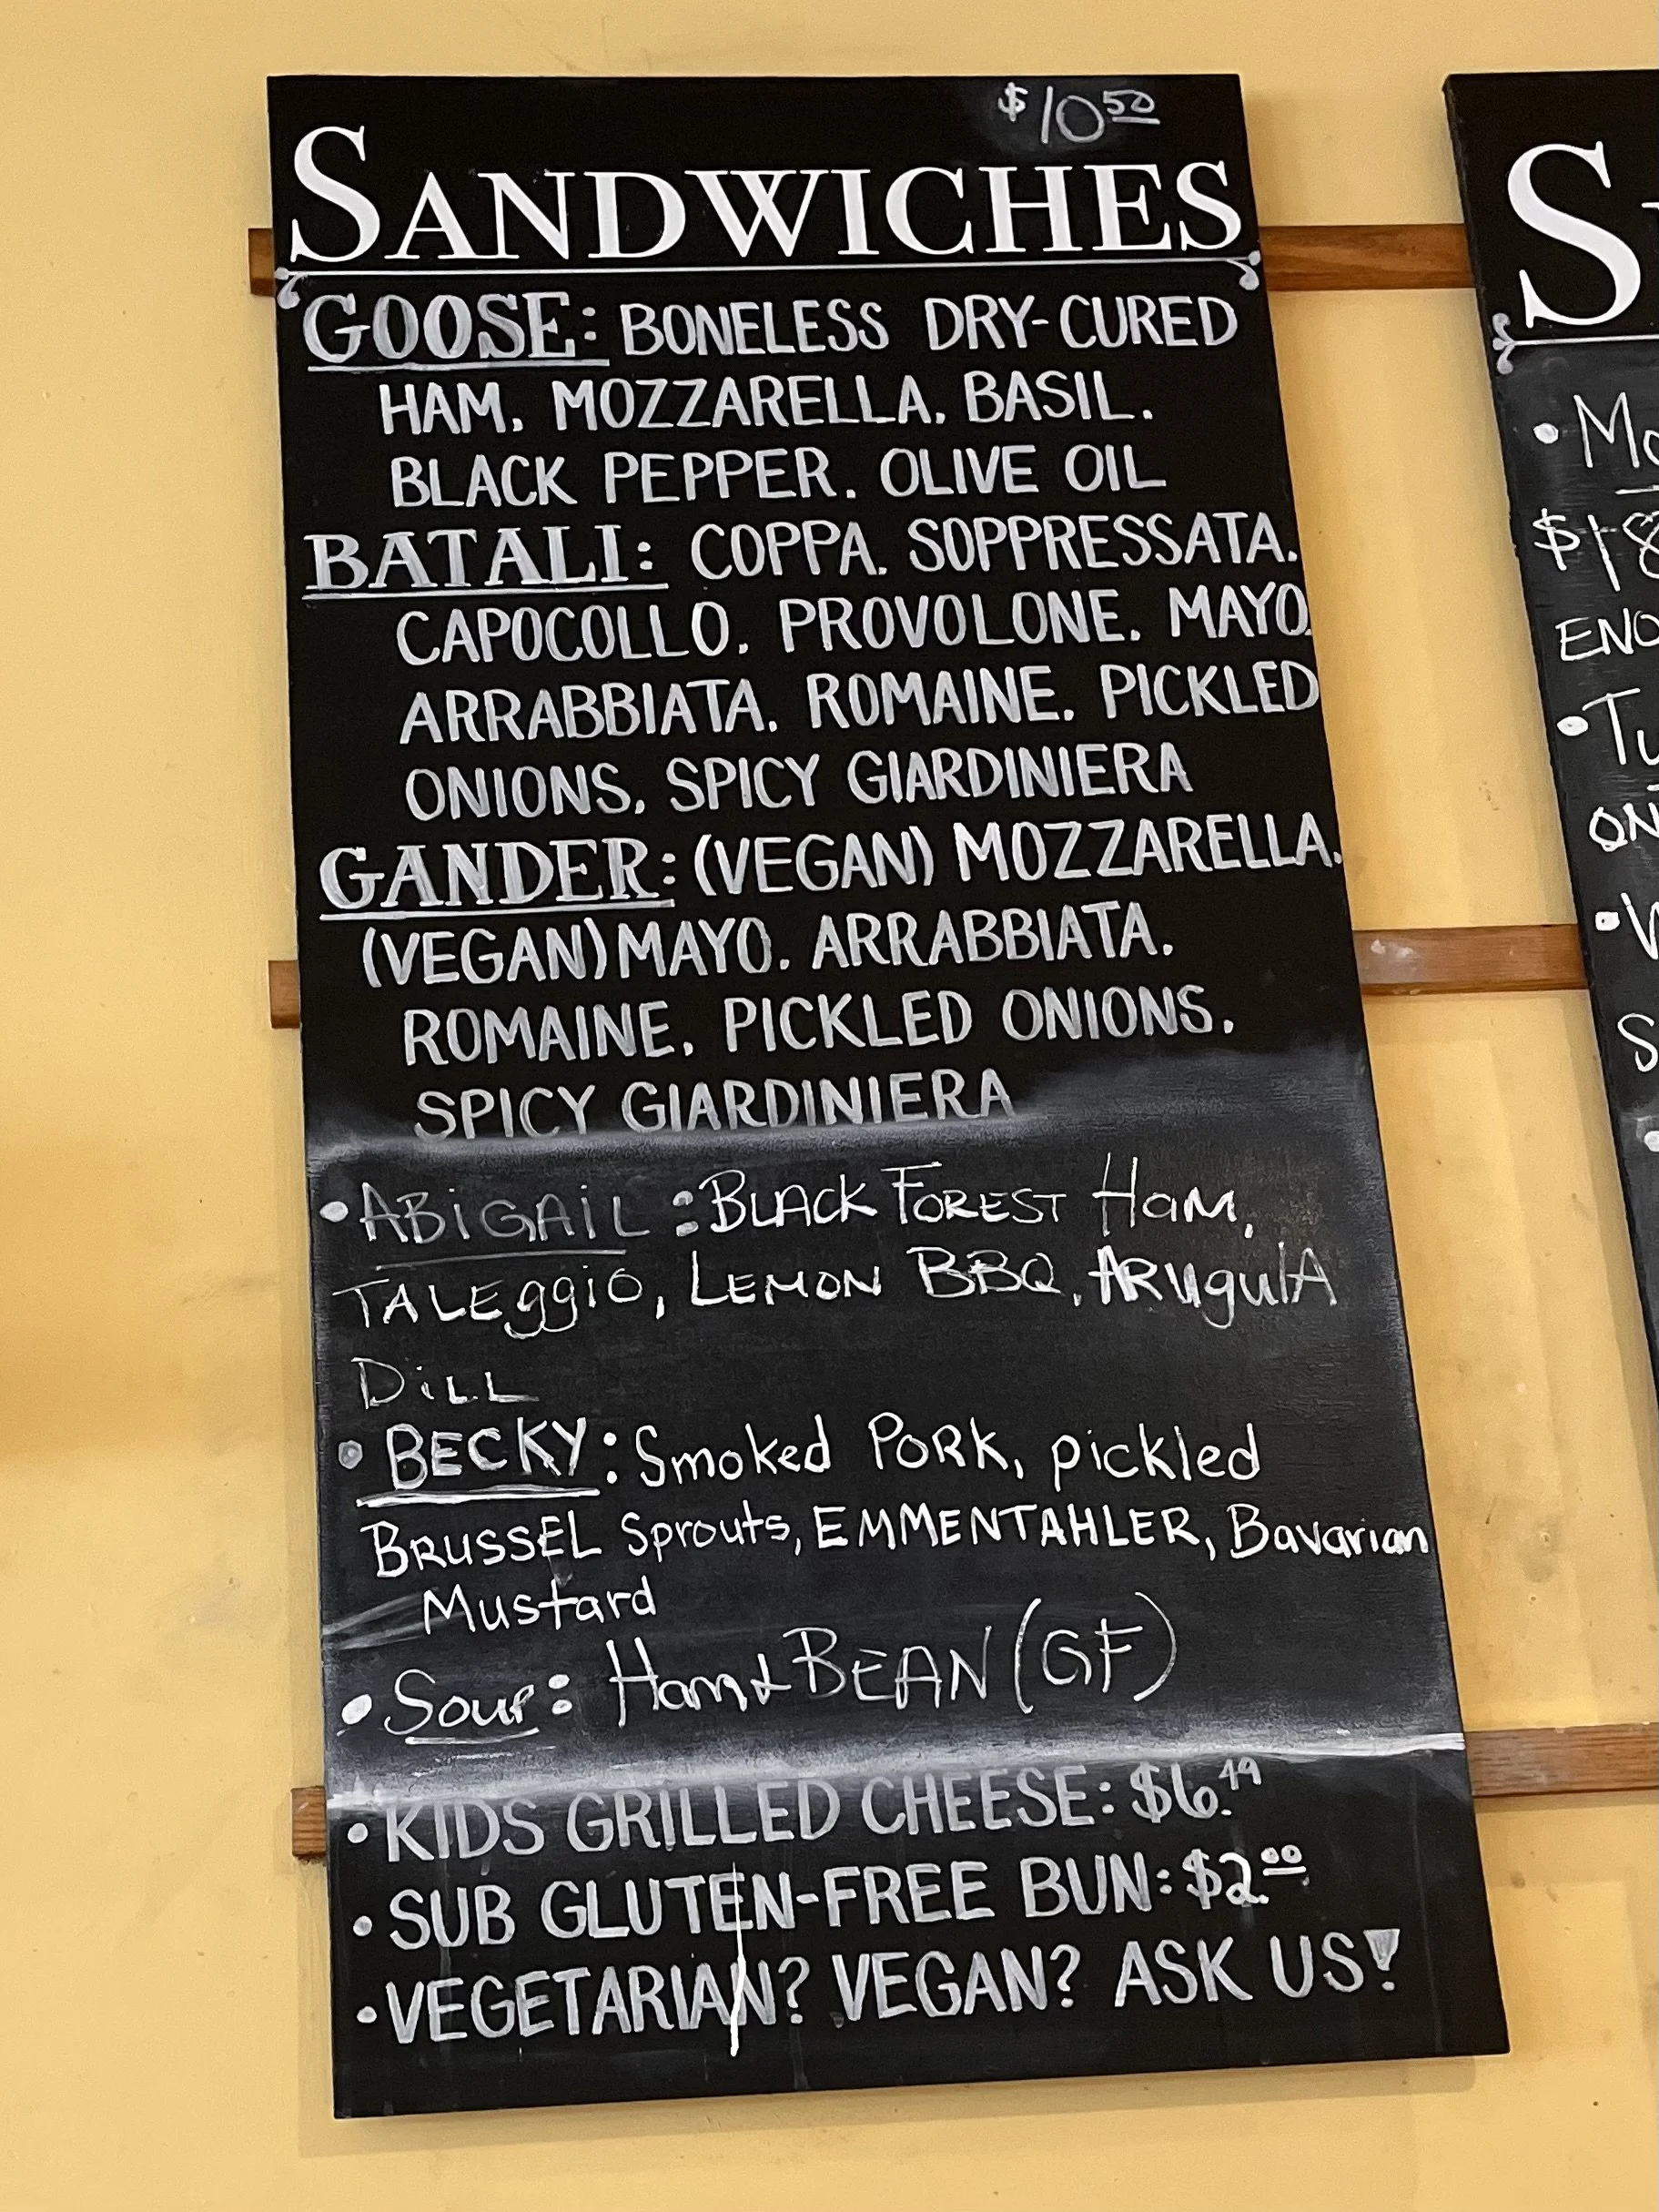 $10 50
SANDWICHES
GOOSE: BONELESS DRY-CURED
HAM, MOZZARELLA, BASIL,
BLACK PEPPER, OLIVE OIL
BATALI: COPPA, SOPPRESSATA,
CAPOCOLLO, PROVOLONE, MAYO,
ARRABBIATA, ROMAINE, PICKLED
ONIONS, SPICY GIARDINIERA
GANDER: (VEGAN) MOZZARELLA,
(VEGAN) MAYO, ARRABBIATA,
ROMAINE, PICKLED ONIONS,
SPICY GIARDINIERA
• ABiGAiL : BLACK FOREST Ham,
TALEggiO, LEMON BBQ, ARugulA
DiLL
• BECKY: Smoked PORK, pickled
BRUSSEL Sprouts, EMMENTAHLER, Bavarian
Mustard
• Soup: Ham & BEAN (GF)
• KIDS GRILLED CHEESE: $6.49
• SUB GLUTEN-FREE BUN: $2.00
• VEGETARIAN? VEGAN? ASK US!
S
$18